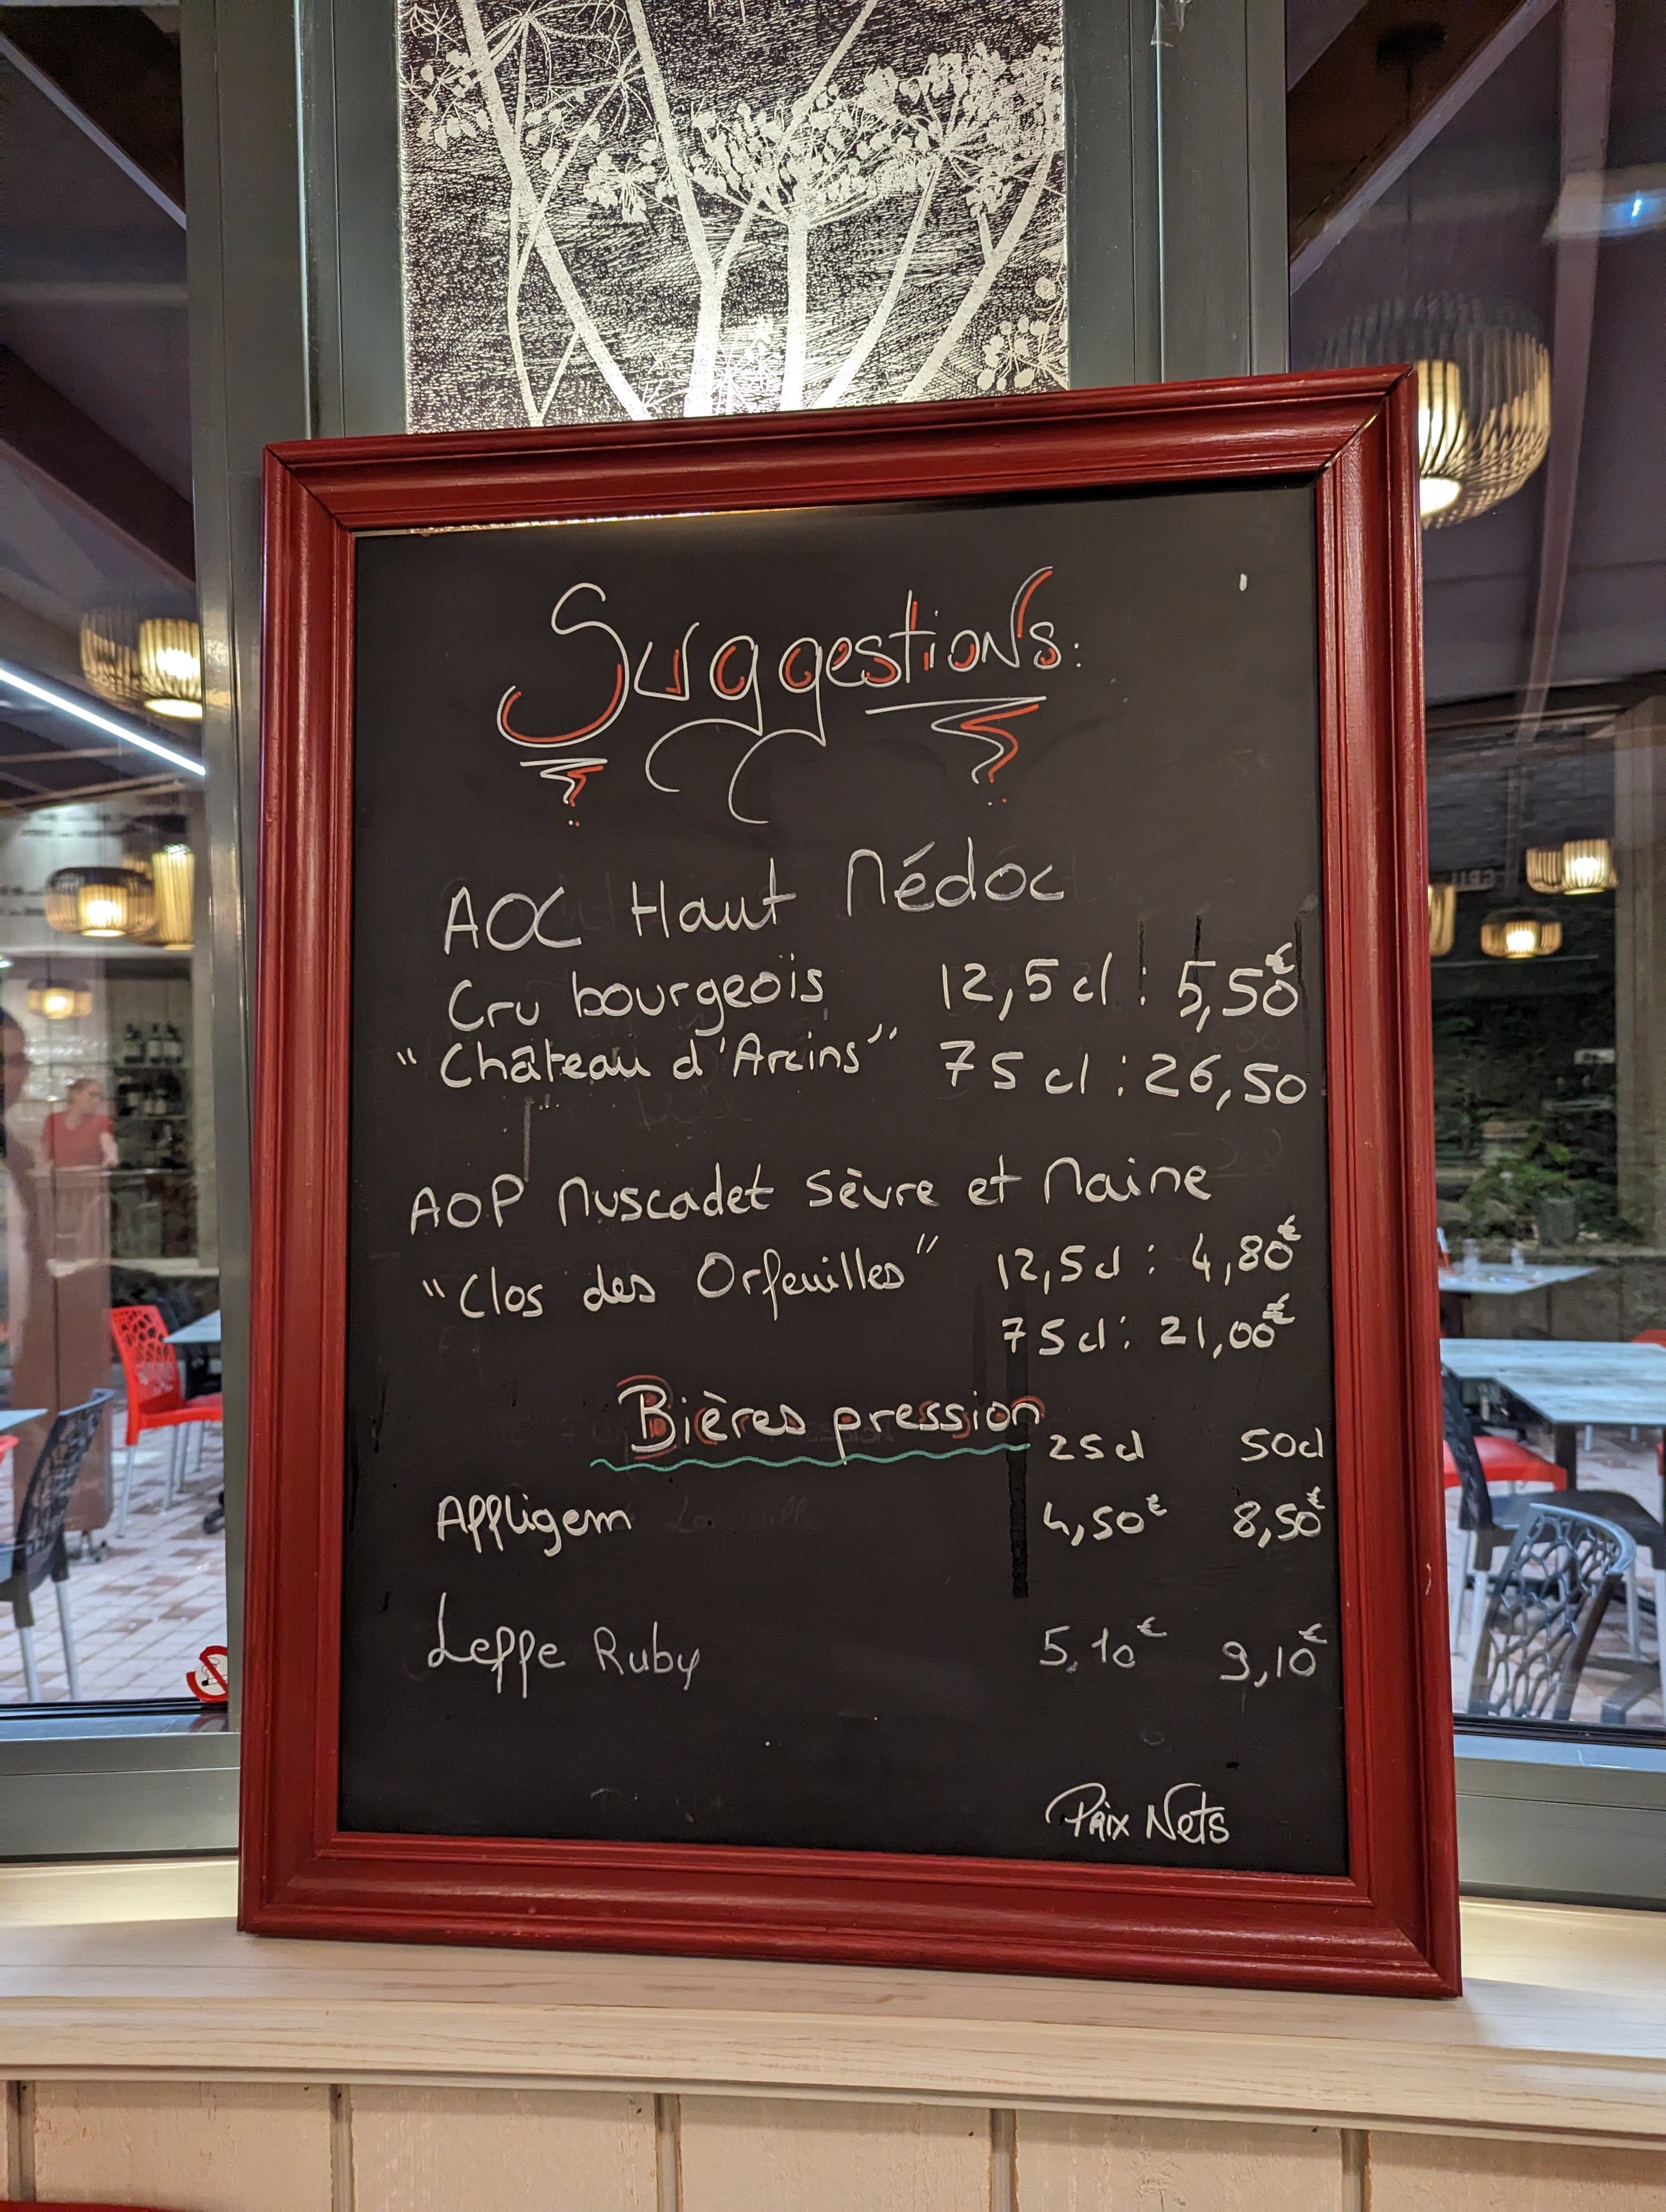 Suggestions:
AOC Haut Médoc
Cru bourgeois 12,5 cl : 5,50€
"Château d'Arcins" 75 cl : 26,50
AOP Muscadet Sèvre et Maine
"Clos des Orfeuilles" 12,5 cl : 4,80€
75 cl : 21,00€
Bières pression
25 cl 50 cl
Affligem 4,50€ 8,50€
Leffe Ruby 5,10€ 9,10€
Prix Nets